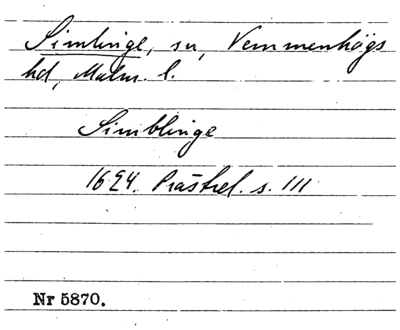 Simlinge, sn, Vemmenhögs
hd, Malm. l.
Simblinge
1624. Prästrel. s. 111
Nr 5870.